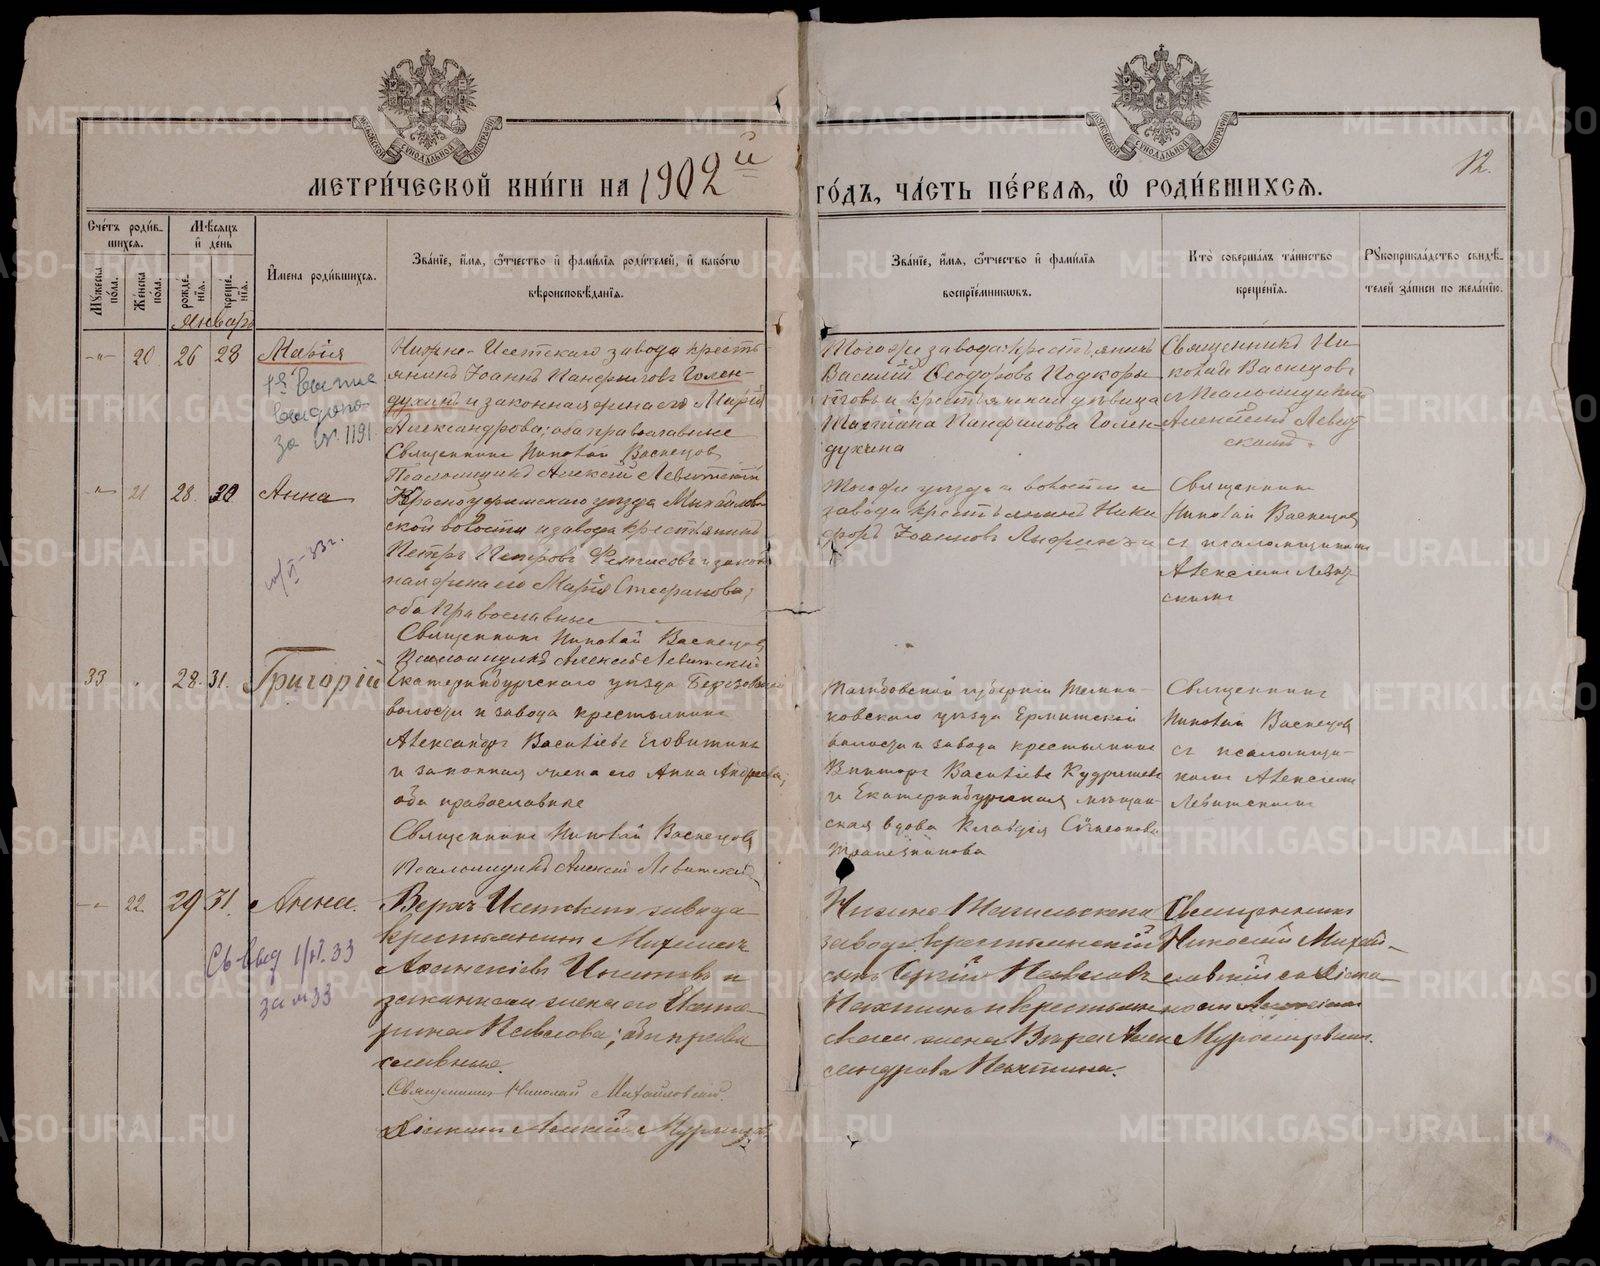 МЕТРИ́ЧЕСКОЙ КНИ́ГИ НА 1902й ГО́ДЪ, ЧА́СТЬ ПЕ́РВАЯ, Ѿ РОДИ́ВШИХСЯ.
12.
Сче́тъ роди́в-
шихся.
Мѣсяцъ
и де́нь
Мꙋжеска по́ла.
Же́нска по́ла.
рожде́-
нїя.
креще́-
нїя.
И́мена роди́вшихся.
Зва́нїе, и́мя, ѻ҆́тчество и фами́лїя роди́телей, и како́гѡ
вѣроисповѣ́данїя.
Зва́нїе, и́мя, ѻ҆́тчество и фами́лїя
воспрїе́мникѡвъ.
Кто̀ соверша́лъ та́инство
креще́нїя.
Рꙋкоприкла́дство свидѣ́-
телей за́писи по жела́нїю.
Январь
-"- 20 26 28 Марія
за № 1191
Нижне-Исетскаго завода кресть-
янинъ Іоаннъ Панфиловъ Голен-
духинъ и законная жена его Марія
Александрова; оба православные
Священникъ Николай Васнецовъ
Псаломщикъ Алексій Левитскій
Тогоже завода крестьянинъ
Василій Ѳеодоровъ Подкоры-
товъ и крестьянская дѣвица
Татіана Панфилова Голен-
духина
Священникъ Ни-
колай Васнецовъ
Алексѣемъ Левит-
скимъ.
-"- 21 28. 30 Анна
Красноуфимскаго уѣзда Михайлов-
ской волости и завода крестьянинъ
Петръ Петровъ и закон-
ная жена его Марія Стефанова;
оба православные
Священникъ Николай Васнецовъ
Псаломщикъ Алексій Левитскій
Тогоже уѣзда и волости и
завода крестьянинъ Ники-
форъ Іоанновъ
Священникъ
Николай Васнецовъ
съ псаломщикомъ
Алексіемъ Левит-
скимъ
33 " 28. 31. Григорій
Екатеринбургскаго уѣзда Березовской
волости и завода крестьянинъ
Александръ Васильевъ
и законная жена его Анна Андреева;
оба православные
Священникъ Николай Васнецовъ
Псаломщикъ Алексій Левитскій
Тамбовской губерніи Темни-
ковскаго уѣзда Ермишской
волости и завода крестьянинъ
Викторъ Васильевъ Кудряшевъ
и Екатеринбургская мѣщан-
ская вдова Клавдія Симеонова
Трапезникова
Священникъ
Николай Васнецовъ
съ псаломщи-
комъ Алексіемъ
Левитскимъ
-"- 22. 29 31. Анна.
за № 33
Верхъ-Исетскаго завода
крестьянинъ Михаилъ
Аѳанасіевъ и
законная жена его Екате-
рина Павлова; оба право-
славные.
Священникъ Николай Михайловскій.
Діаконъ Алексій
Нижне Тагильскаго
завода крестьянскій
сынъ Сергій Павловъ
Пахтинъ и крестьян-
ская жена Варвара Алек-
сандрова Пахтина.
Священникъ
Николай Михай-
ловскій съ діако-
номъ Алексіемъ